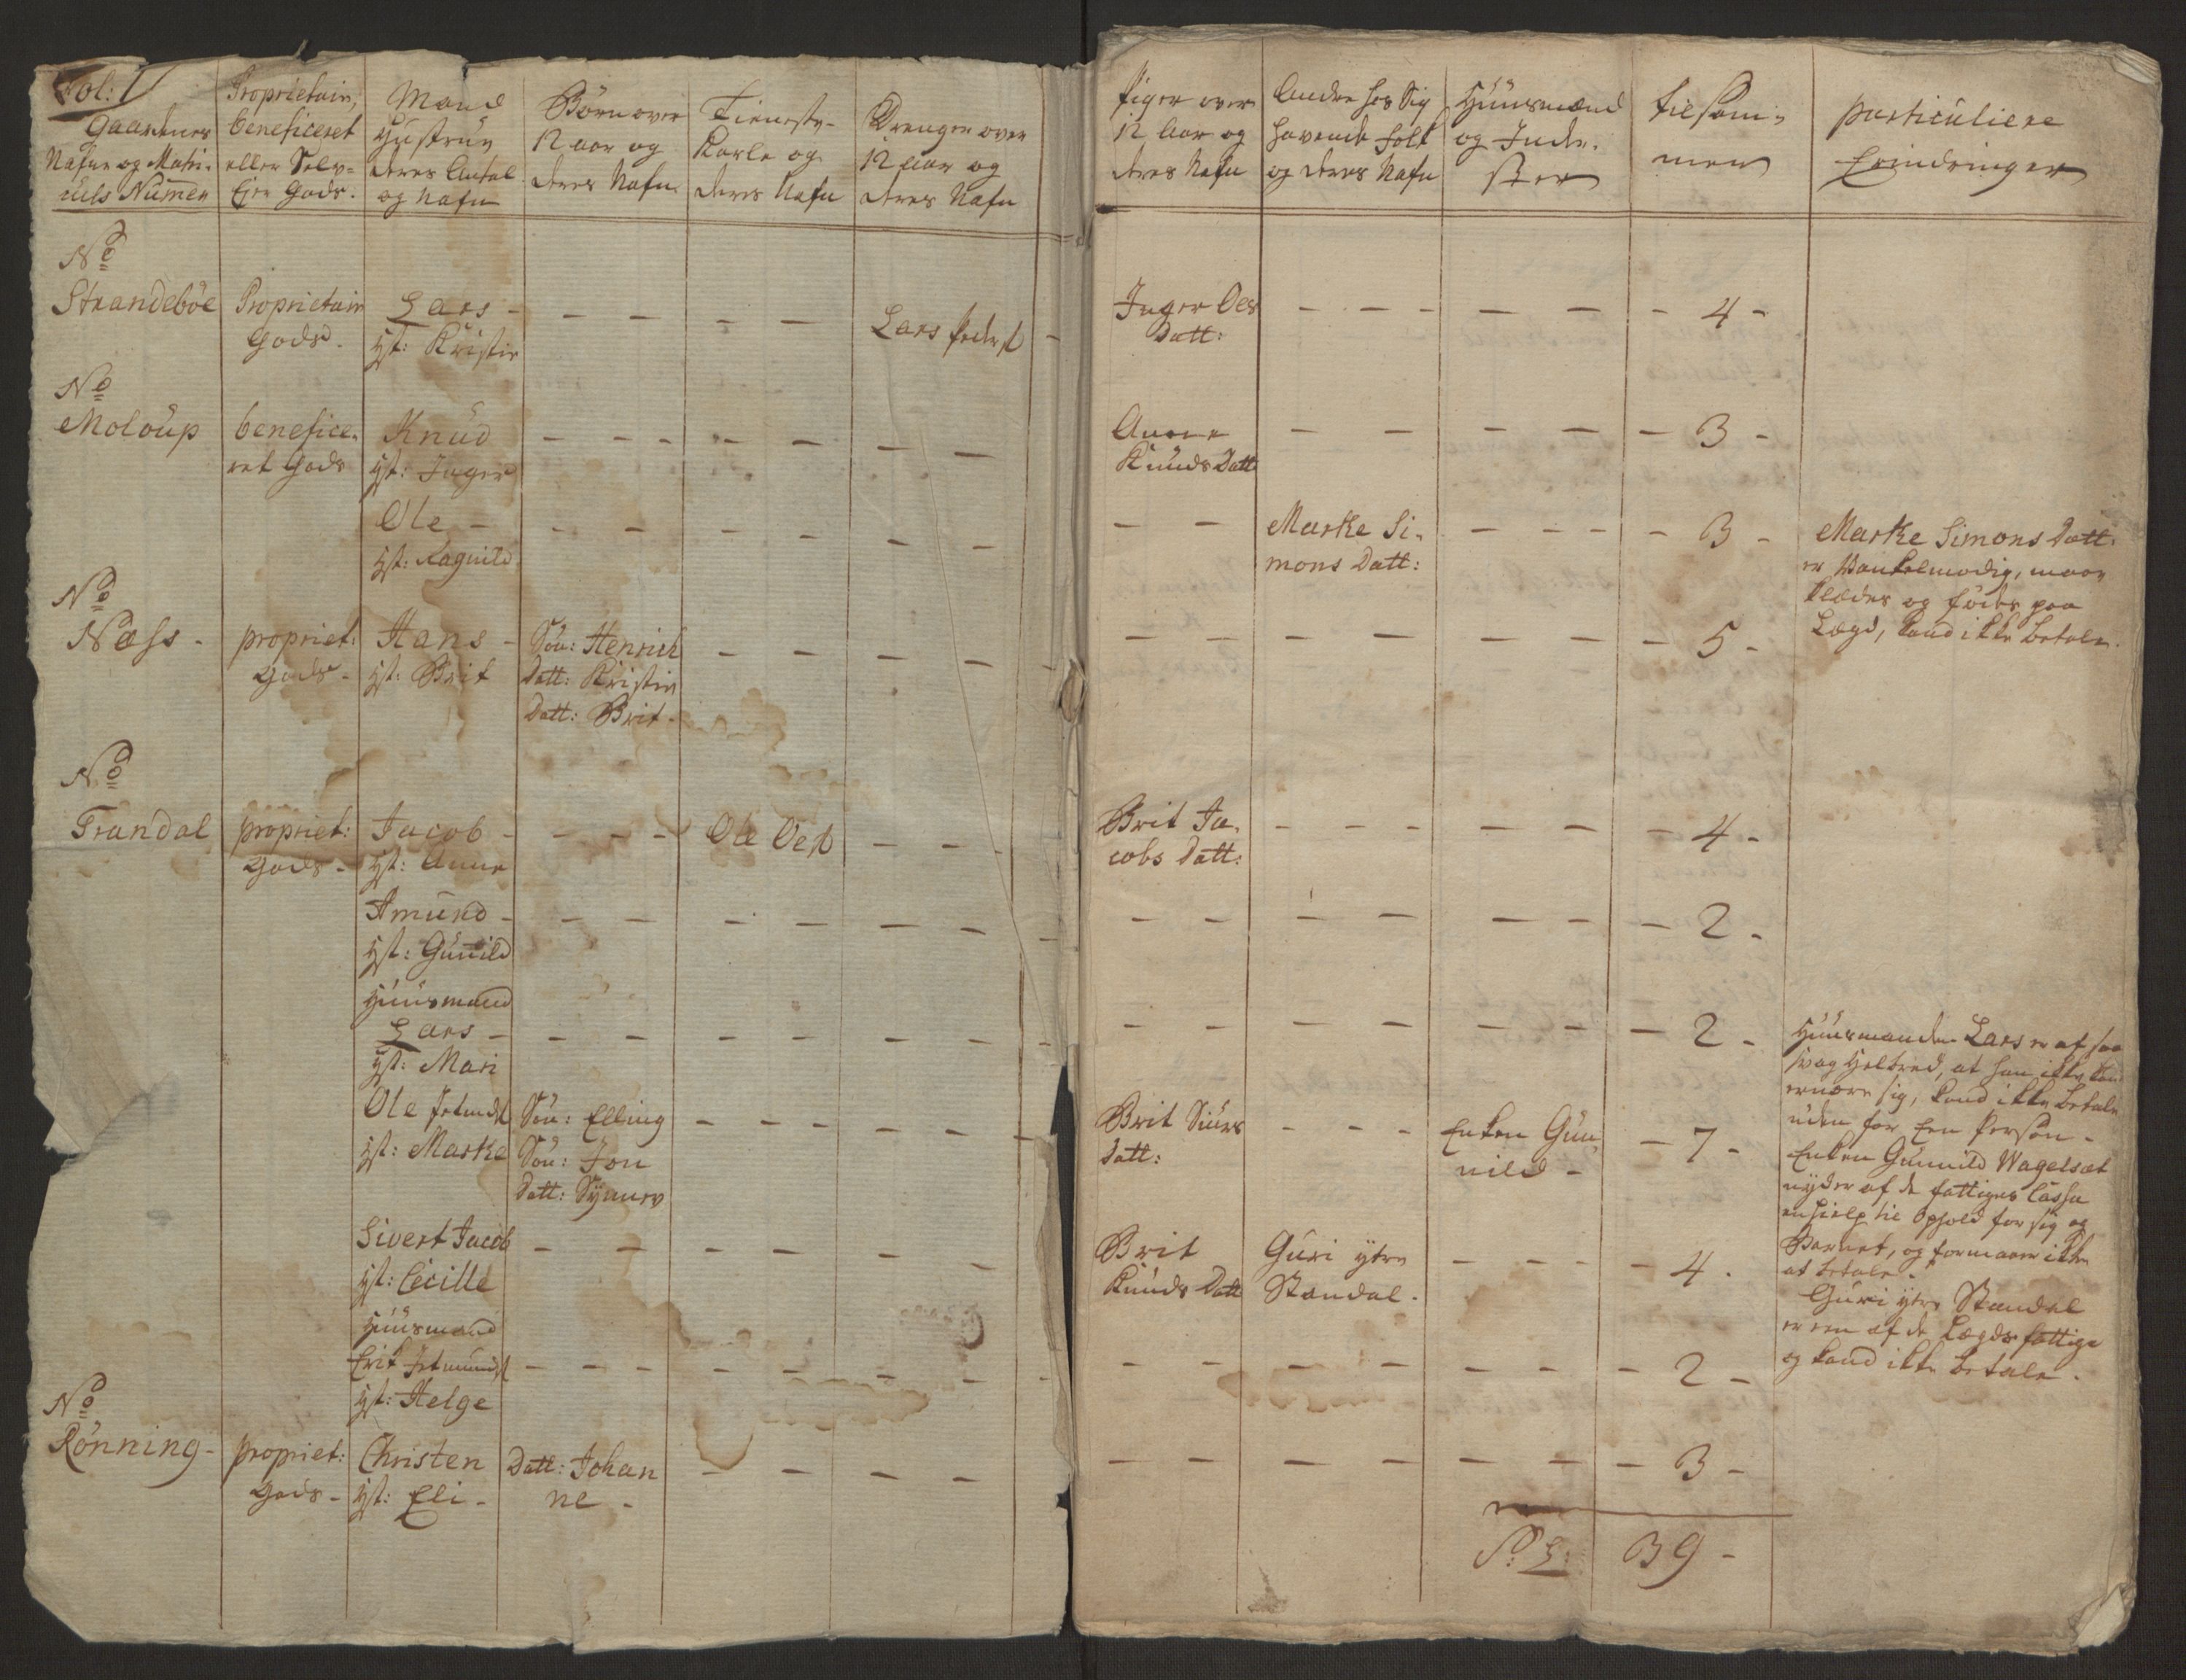 Fol: 1
Gaardenes
Nafne og Matri-
culs Numer
Proprietair,
beneficeret
eller Selv-
Eier Gods.
Mand
Hustrue
deres Antal
og Nafn
Börn over
12 aar og
deres Nafn
Tieneste-
Karle og
deres Nafn
Drenger over
12 Aar og
deres Nafn
Piger over
12 Aar og
deres Nafn
Andre hos Sig
havende Folk
og deres Nafn
Huusmænd
og Inder-
ster
tilsam-
men
particuliere
Erindringer
No
Strandeböe
Proprietair
Gods.
Lars -
Hst: Kristin
Lars Peders
Inger Oles
Datt:
4
No
Moloup
benefice-
ret Gods
Knud
Hst: Inger
Anne
Knuds Datt
3
Ole -
Hst: Ragnild
Marke Si-
mons Datt:
3
Marke Simons Datt:
er Vankelmodig, maae
klædes og födes paa
Lægd, kand ikke betale.
No
Næss -
propriet:
Gods -
Hans -
Hst: Brit
Sön: Henrich
Datt: Kristin
Datt: Brit -
5
No
Trandal
propriet:
Gods -
Jacob -
Hst: Anne
Ole Oles
Brit Ja-
cobs Datt:
4
Amund -
Hst: Gunild
2
Huusmand
Lars -
Hst: Mari
2
Huusmanden Lars er af saa
svag Helbred, at han ikke kan
ernære sig, kand ikke betale
uden for Een Person -
Ole Jetmunds
Hst: Marke
Sön: Elling
Sön: Jon
Datt: Synnev
Brit Siurs
Datt:
Enken Gun-
nild -
7
Enken Gunnild Wagelsæt
nyder af de fattiges Cassa
en hielp til Ophold for sig og
Barnet, og formaaer ikke
at betale.
Sivert Jacob
Hst: Cecille
Brit
Knuds Datt
Guri ytre
Standal.
4
Guri ytre Standal
er een af de Lægds fattige
og kand ikke betale.
Huusmand
Erik Jetmunds
Hst: Helge
2
No
Rönning -
propriet:
Gods -
Christen
Hst: Eli -
Datt: Johan
ne -
3
39 -